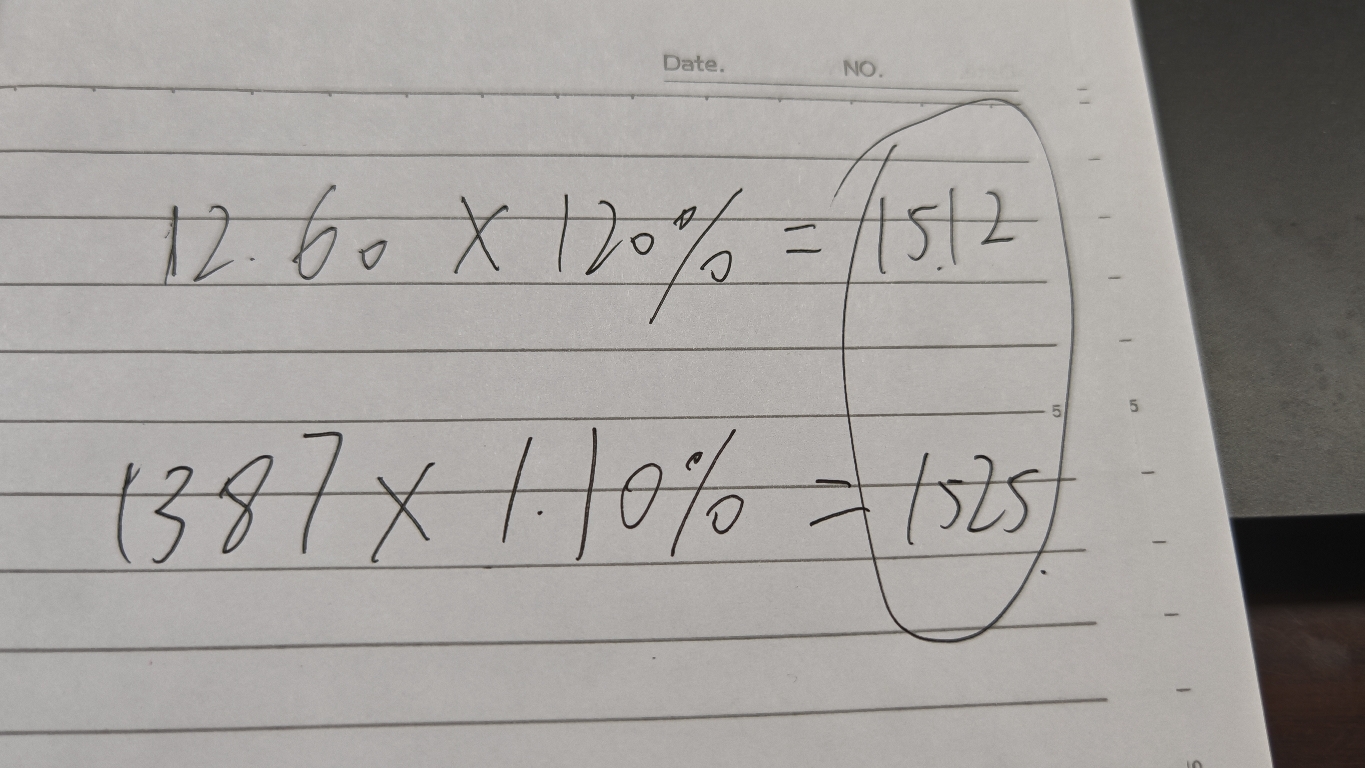 Date. NO.
12.60 X 120% = 15.12
5 5
1387 X 1.10% = 1525